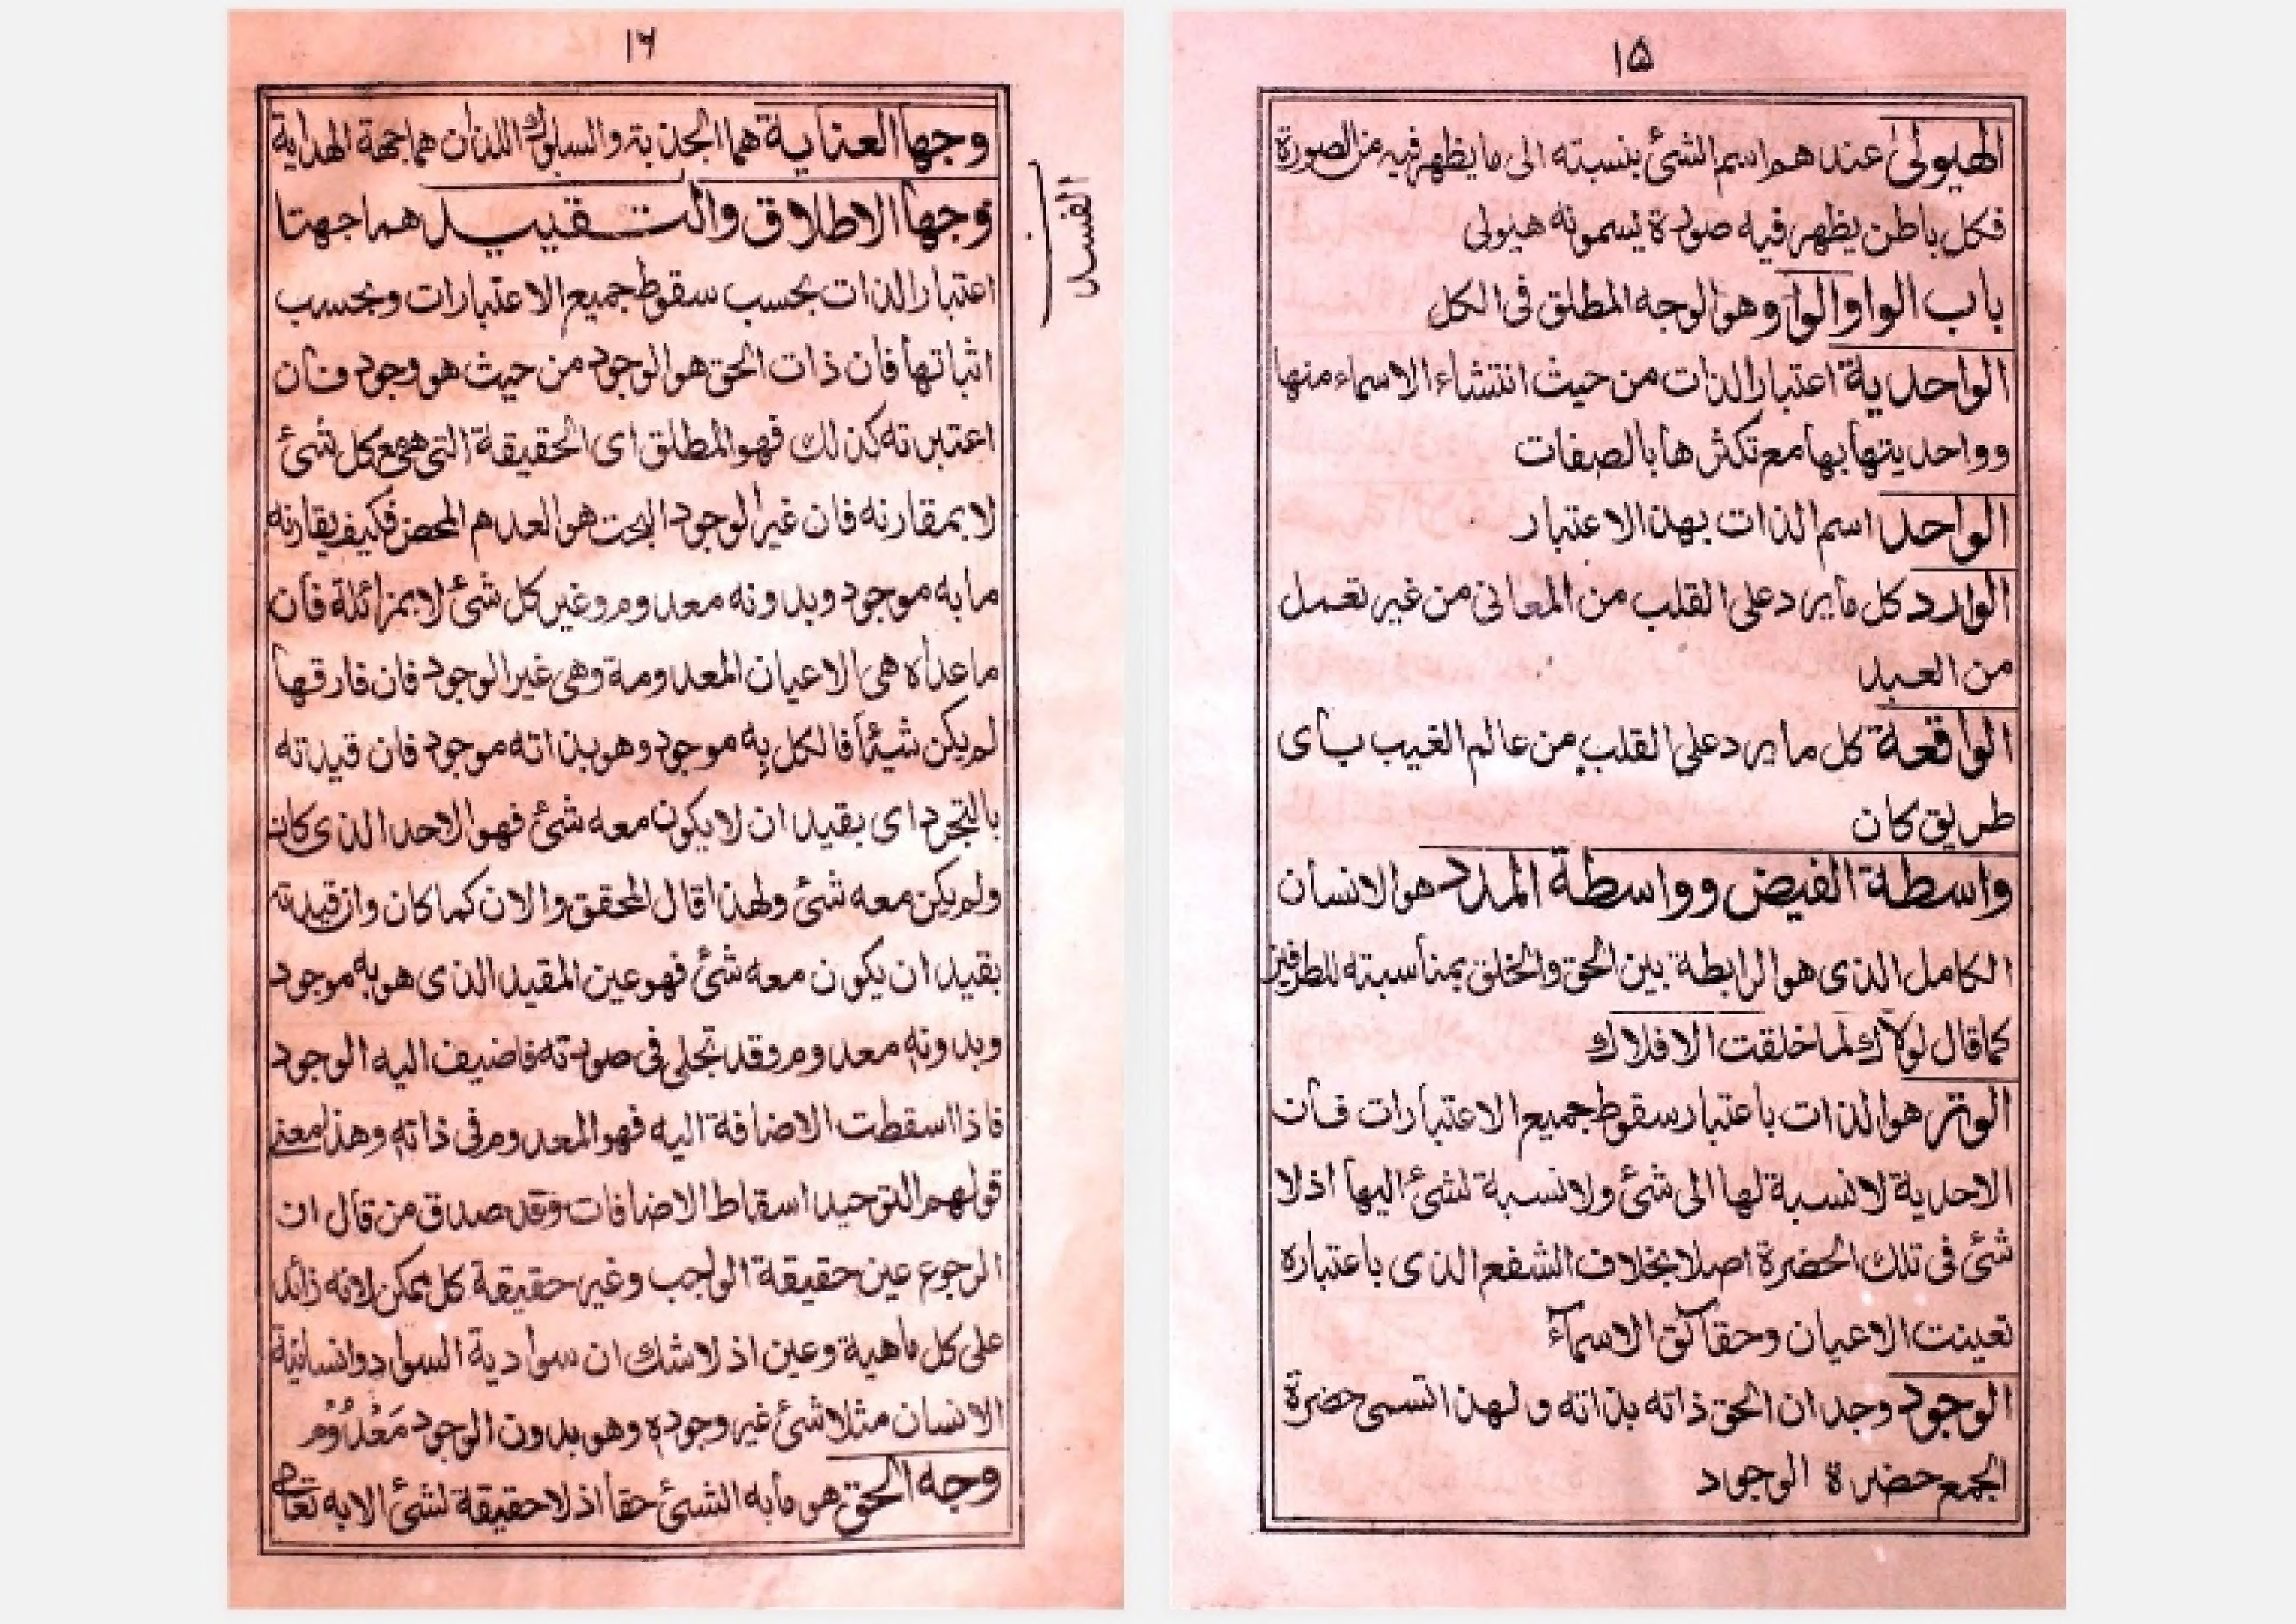 ۱۵
الهيولى عندهم اسم الشئ بنسبته الى ما يظهر فيه من الصورة
فكل باطن يظهر فيه صورة يسمونه هيولى
باب الواو الواو هو الوجه المطلق فى الكل
الواحدية اعتبار الذات من حيث انتشاء الاسماء منها
وواحديتها بها مع تكثرها بالصفات
الواحد اسم الذات بهذا الاعتبار
الوارد كل ما يرد على القلب من المعانى من غير تعمل
من العبد
الواقعة كل ما يرد على القلب من عالم الغيب باى
طريق كان
واسطة الفيض وواسطة المدد هو الانسان
الكامل الذى هو الرابطة بين الحق والخلق بمناسبته للطرفين
كما قال لولاك لما خلقت الافلاك
الوتر هو الذات باعتبار سقوط جميع الاعتبارات فان
الاحدية لا نسبة لها الى شئ ولا نسبة لشئ اليها اذ لا
شئ فى تلك الحضرة اصلا بخلاف الشفع الذى باعتباره
تعينت الاعيان وحقائق الاسماء
الوجود وجدان الحق ذاته بذاته ولهذا تسمى حضرة
الجمع حضرة الوجود
۱۶
وجها العناية هما الجذبة والسلوك اللذان هما جهة الهداية
وجها الاطلاق والتقييد هما جهتا
اعتبار الذات بحسب سقوط جميع الاعتبارات وبحسب
اثباتها فان ذات الحق هو الوجود من حيث هو وجود فان
اعتبرته كذلك فهو المطلق اى الحقيقة التى هى مع كل شئ
لا بمقارنه فان غير الوجود البحت هو العدم المحض فكيف يقارنه
ما به موجود وبدونه معدوم وغير كل شئ لا بمزائلة فان
ما عداه هى الاعيان المعدومة وهى غير الوجود فان فارقها
لم يكن شيئا فالكل به موجود وهو بذاته موجود فان قيدته
بالتجرد اى بقيد ان لا يكون معه شئ فهو الاحد الذى كان
ولم يكن معه شئ ولهذا قال المحقق والان كما كان وان قيدته
بقيد ان يكون معه شئ فهو عين المقيد الذى هو به موجود
وبدونه معدوم وقد تجلى فى صورته فاضيف اليه الوجود
فاذا اسقطت الاضافة اليه فهو المعدوم فى ذاته وهذا معنى
قولهم التوحيد اسقاط الاضافات وقد صدق من قال ان
الرجوع عين حقيقة الواجب وغير حقيقة كل ممكن لانه زائد
على كل ماهية وعين اذ لا شك ان سوادية السواد وانسانية
الانسان مثلا شئ غير وجوده وهو بدون الوجود مَعْدُوْم
وجه الحق هو ما به الشئ حقا اذ لا حقيقة لشئ الا به تعالى